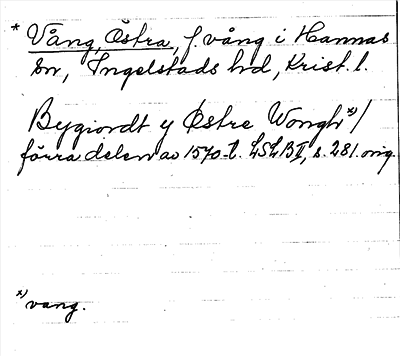 * Vång, Östra, f. vång i Hannas
sn, Ingelstads hd, Krist. l.
Bygiordt y Østre Wongh x)/
förra delen av 1570-t. LSLB I, s. 281. orig.
x) vang.